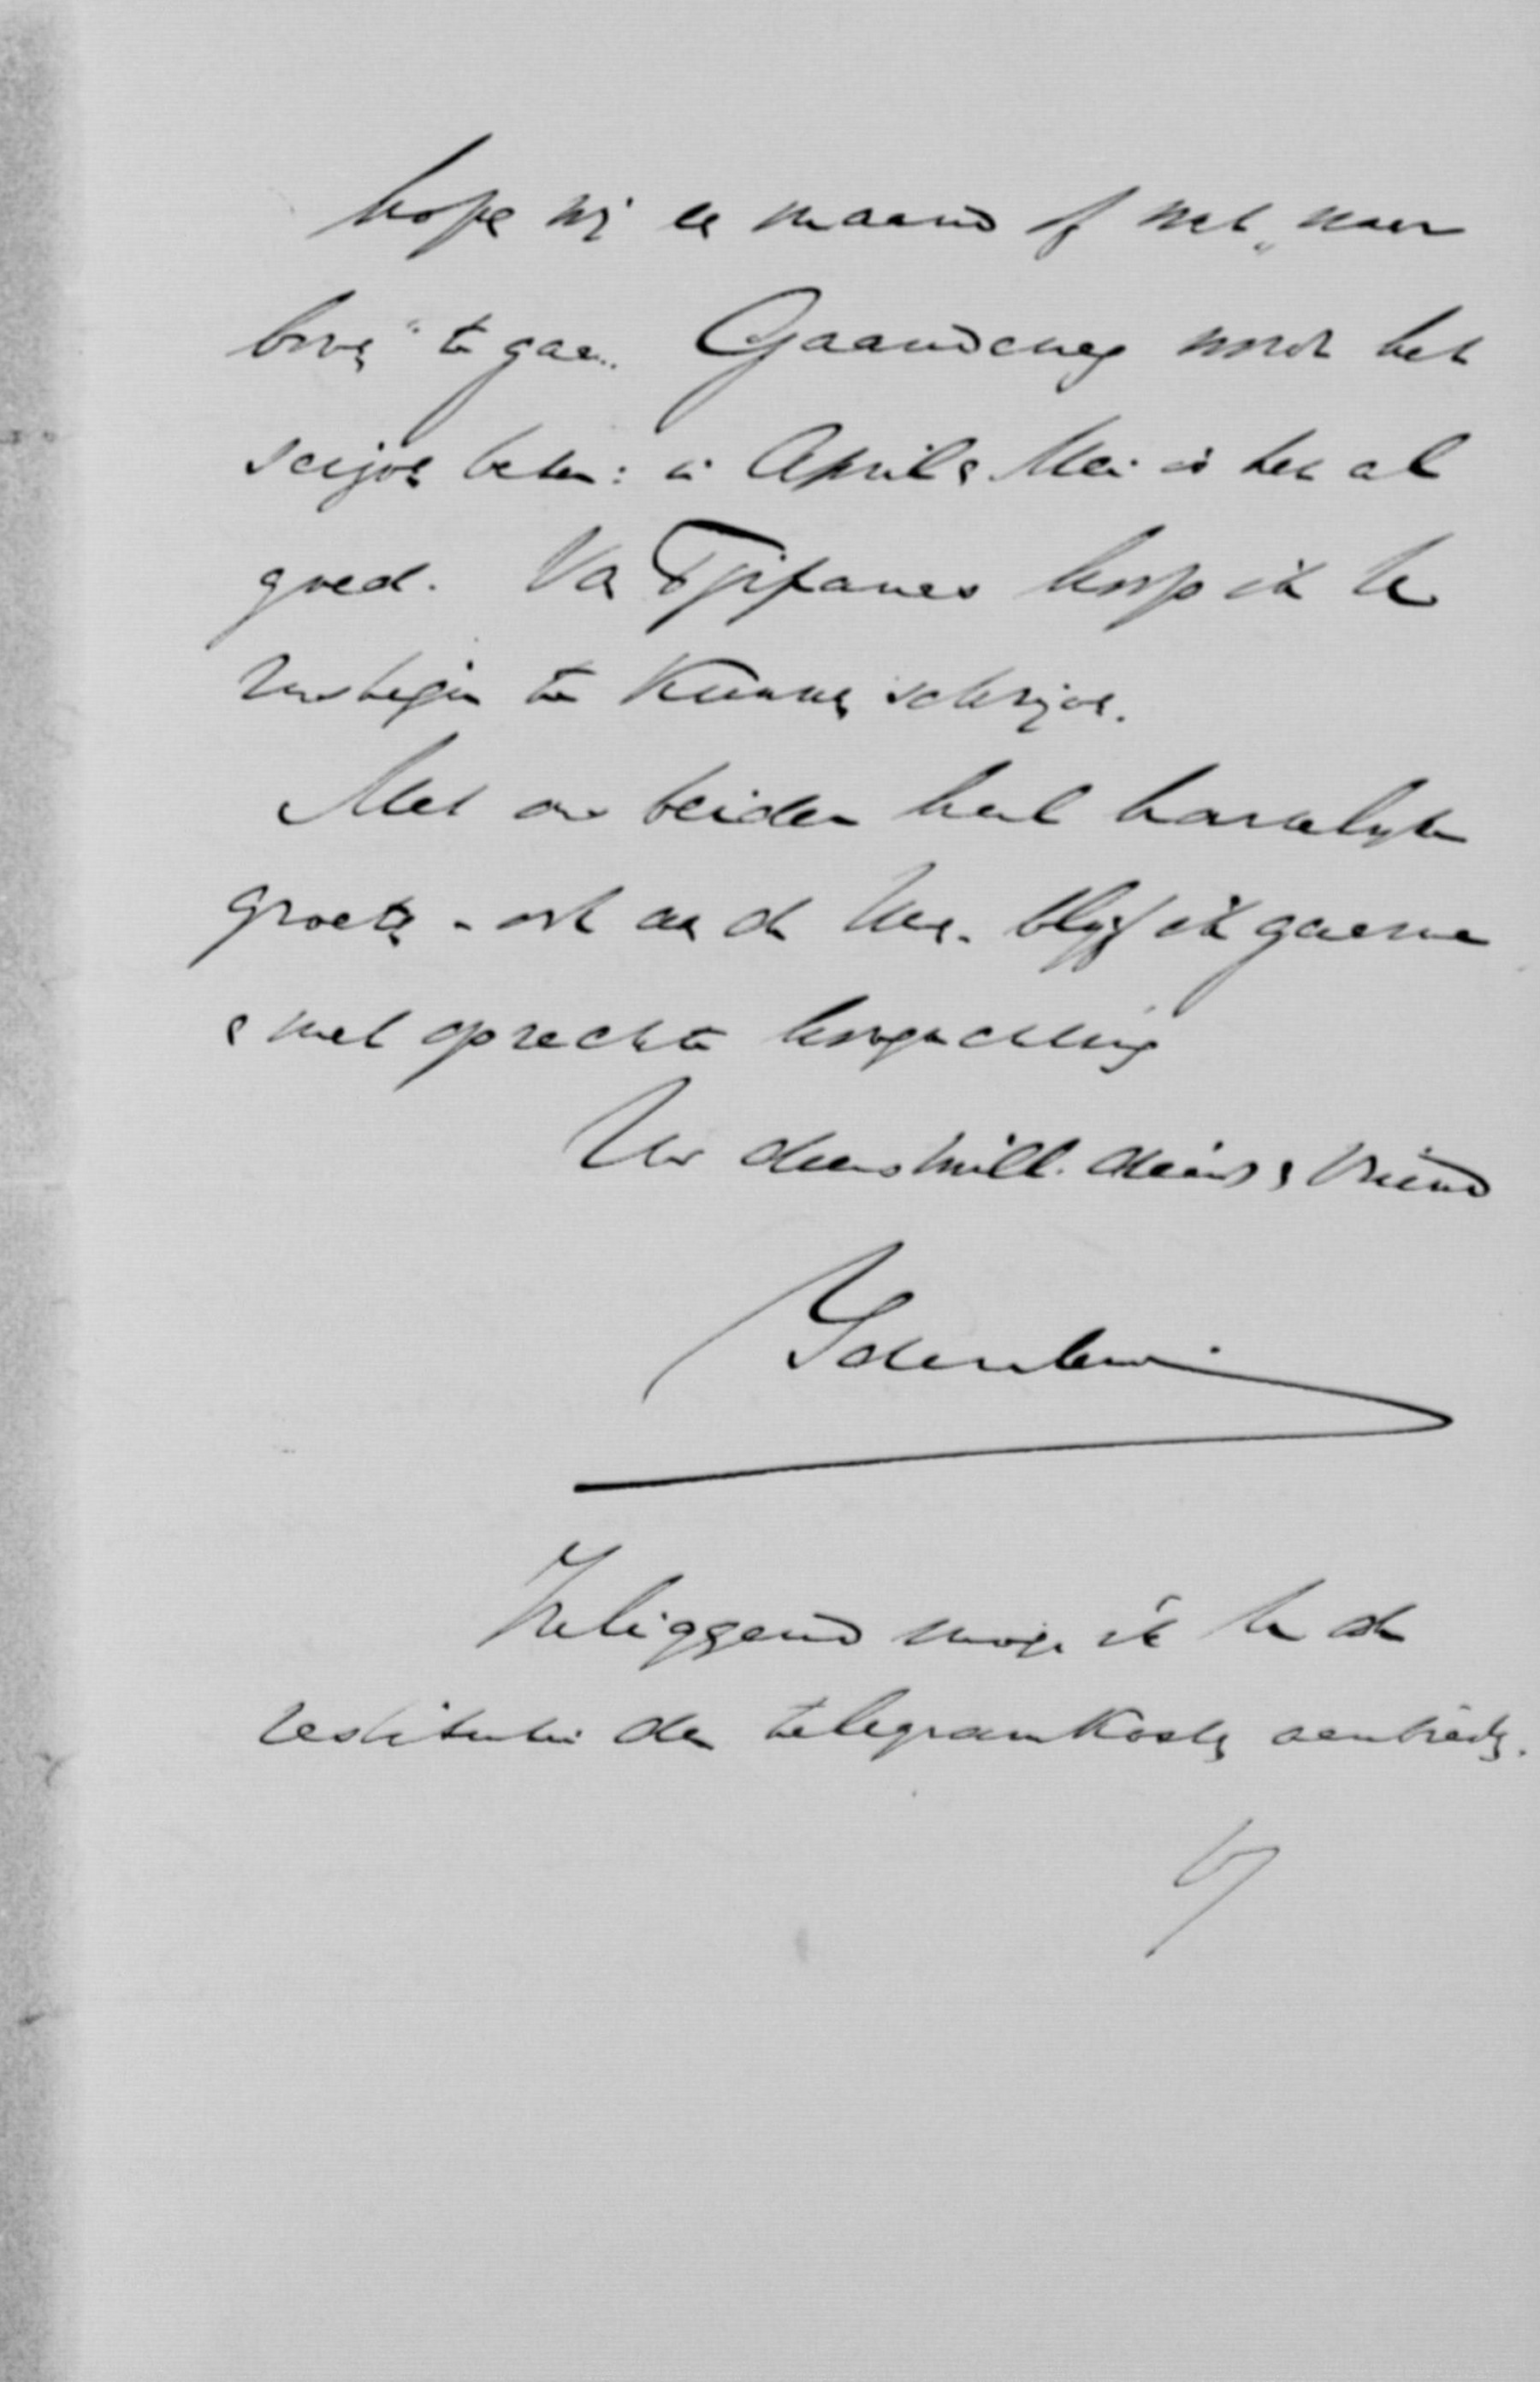 hopen wij een maand of wat „naar
boven" te gaan. Gaandeweg wordt het
seizoen beter: in April & Mei is het al
goed. Van Tjipanas hoop ik U
te kunnen schrijven.
Met ons beider heel hartelijke
groeten - ook aan de Uwen - blijf ik gaarne
& met oprechte hoogachting
Uw dienstwill. dienr & vriend
Idenburg
Inliggend moge ik U de
restitutie der telegramkosten aanbieden.